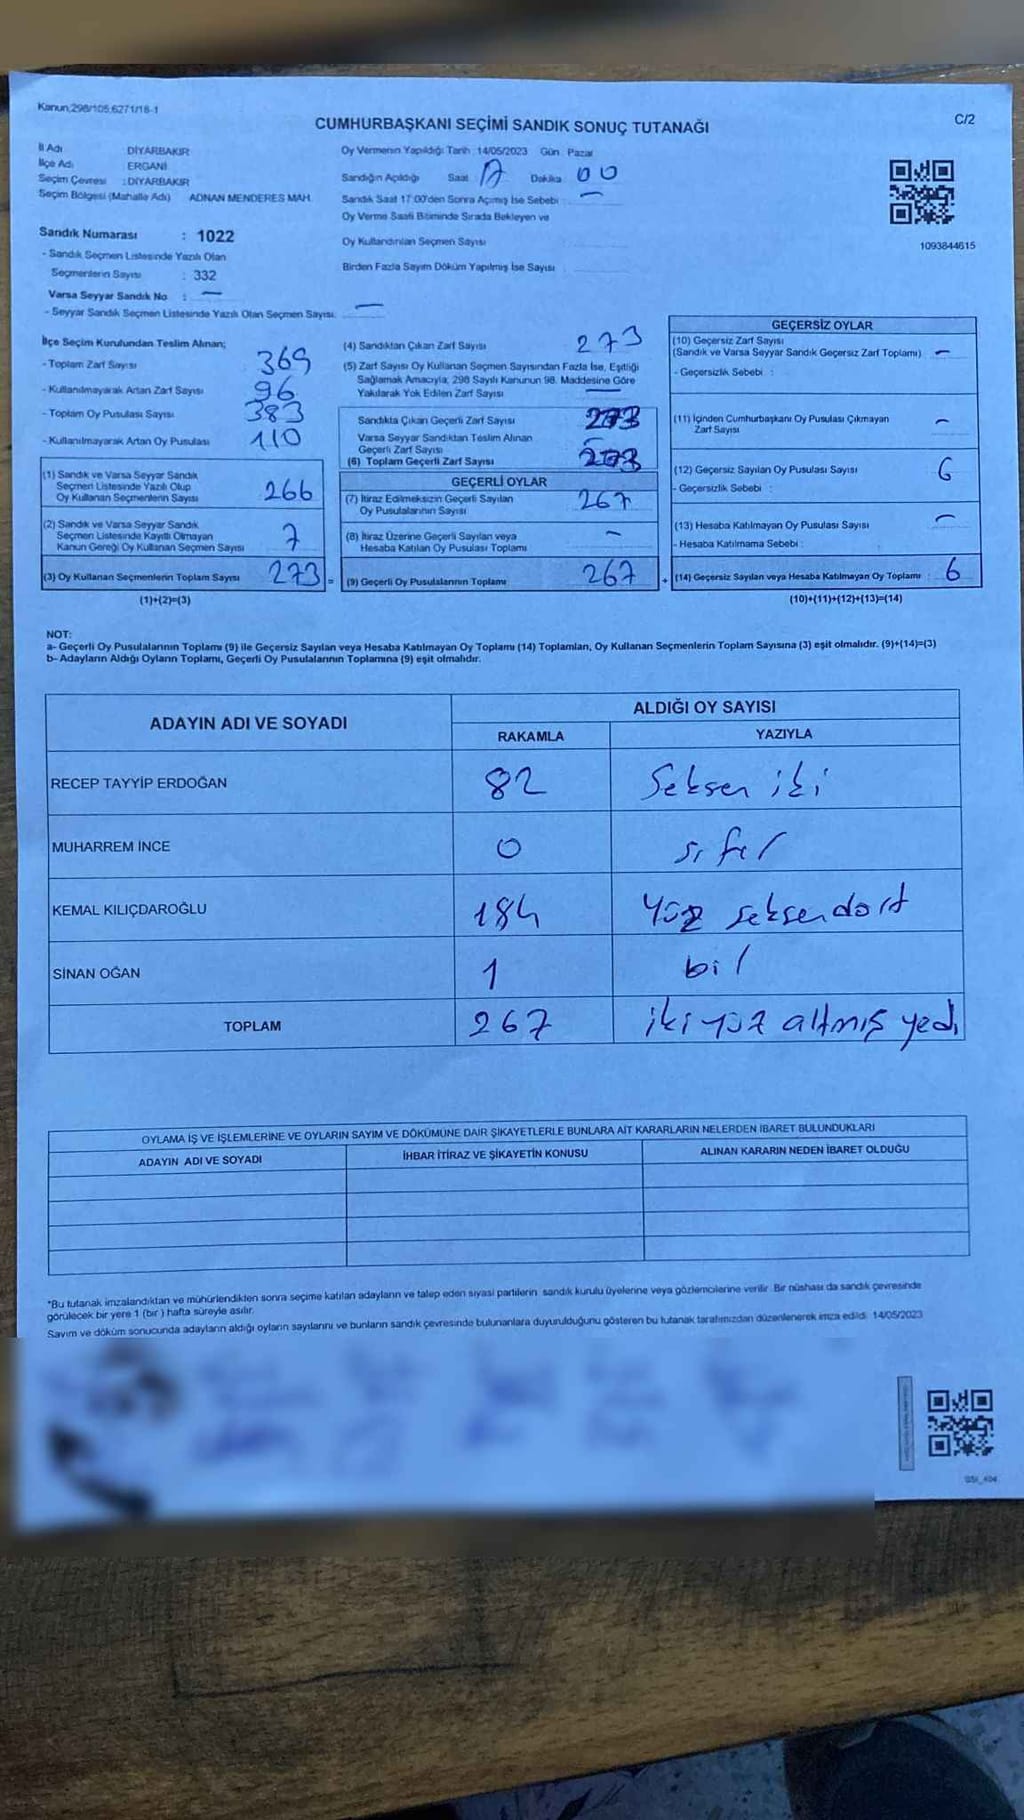 Kanun;298/105;6271/18-1
C/2
CUMHURBAŞKANI SEÇİMİ SANDIK SONUÇ TUTANAĞI
İl Adı DİYARBAKIR
İlçe Adı ERGANİ
Seçim Çevresi : DİYARBAKIR
Seçim Bölgesi (Mahalle Adı) ADNAN MENDERES MAH.
Sandık Numarası : 1022
- Sandık Seçmen Listesinde Yazılı Olan
Seçmenlerin Sayısı : 332
Varsa Seyyar Sandık No : —
- Seyyar Sandık Seçmen Listesinde Yazılı Olan Seçmen Sayısı: —
Oy Vermenin Yapıldığı Tarih : 14/05/2023 Gün : Pazar
Sandığın Açıldığı Saat 17 Dakika 00
Sandık Saat 17:00'den Sonra Açımış İse Sebebi : —
Oy Verme Saati Bitiminde Sırada Bekleyen ve
Oy Kullandırılan Seçmen Sayısı
Birden Fazla Sayım Döküm Yapılmış İse Sayısı
1093844615
İlçe Seçim Kurulundan Teslim Alınan;
- Toplam Zarf Sayısı 369
- Kullanılmayarak Artan Zarf Sayısı 96
- Toplam Oy Pusulası Sayısı 383
- Kullanılmayarak Artan Oy Pusulası 110
(1) Sandık ve Varsa Seyyar Sandık
Seçmen Listesinde Yazılı Olup
Oy Kullanan Seçmenlerin Sayısı 266
(2) Sandık ve Varsa Seyyar Sandık
Seçmen Listesinde Kayıtlı Olmayan
Kanun Gereği Oy Kullanan Seçmen Sayısı 7
(3) Oy Kullanan Seçmenlerin Toplam Sayısı 273 =
(1)+(2)=(3)
(4) Sandıktan Çıkan Zarf Sayısı 273
(5) Zarf Sayısı Oy Kullanan Seçmen Sayısından Fazla İse, Eşitliği
Sağlamak Amacıyla; 298 Sayılı Kanunun 98. Maddesine Göre
Yakılarak Yok Edilen Zarf Sayısı —
Sandıkta Çıkan Geçerli Zarf Sayısı 273
Varsa Seyyar Sandıktan Teslim Alınan
Geçerli Zarf Sayısı —
(6) Toplam Geçerli Zarf Sayısı 273
GEÇERLİ OYLAR
(7) İtiraz Edilmeksizin Geçerli Sayılan
Oy Pusulalarının Sayısı 267
(8) İtiraz Üzerine Geçerli Sayılan veya
Hesaba Katılan Oy Pusulası Toplamı —
(9) Geçerli Oy Pusulalarının Toplamı 267 +
GEÇERSİZ OYLAR
(10) Geçersiz Zarf Sayısı
(Sandık ve Varsa Seyyar Sandık Geçersiz Zarf Toplamı) —
- Geçersizlik Sebebi :
(11) İçinden Cumhurbaşkanı Oy Pusulası Çıkmayan
Zarf Sayısı —
(12) Geçersiz Sayılan Oy Pusulası Sayısı 6
- Geçersizlik Sebebi :
(13) Hesaba Katılmayan Oy Pusulası Sayısı —
- Hesaba Katılmama Sebebi :
(14) Geçersiz Sayılan veya Hesaba Katılmayan Oy Toplamı : 6
(10)+(11)+(12)+(13)=(14)
NOT:
a- Geçerli Oy Pusulalarının Toplamı (9) ile Geçersiz Sayılan veya Hesaba Katılmayan Oy Toplamı (14) Toplamları, Oy Kullanan Seçmenlerin Toplam Sayısına (3) eşit olmalıdır. (9)+(14)=(3)
b- Adayların Aldığı Oyların Toplamı, Geçerli Oy Pusulalarının Toplamına (9) eşit olmalıdır.
ADAYIN ADI VE SOYADI ALDIĞI OY SAYISI
RAKAMLA YAZIYLA
RECEP TAYYİP ERDOĞAN 82 Seksen iki
MUHARREM İNCE 0 sıfır
KEMAL KILIÇDAROĞLU 184 Yüz seksendört
SİNAN OĞAN 1 bir
TOPLAM 267 ikiyüz altmış yedi
OYLAMA İŞ VE İŞLEMLERİNE VE OYLARIN SAYIM VE DÖKÜMÜNE DAİR ŞİKAYETLERLE BUNLARA AİT KARARLARIN NELERDEN İBARET BULUNDUKLARI
ADAYIN ADI VE SOYADI İHBAR İTİRAZ VE ŞİKAYETİN KONUSU ALINAN KARARIN NEDEN İBARET OLDUĞU
*Bu tutanak imzalandıktan ve mühürlendikten sonra seçime katılan adayların ve talep eden siyasi partilerin sandık kurulu üyelerine veya gözlemcilerine verilir. Bir nüshası da sandık çevresinde
görülecek bir yere 1 (bir ) hafta süreyle asılır.
Sayım ve döküm sonucunda adayların aldığı oyların sayılarını ve bunların sandık çevresinde bulunanlara duyurulduğunu gösteren bu tutanak tarafımızdan düzenlenerek imza edildi. 14/05/2023